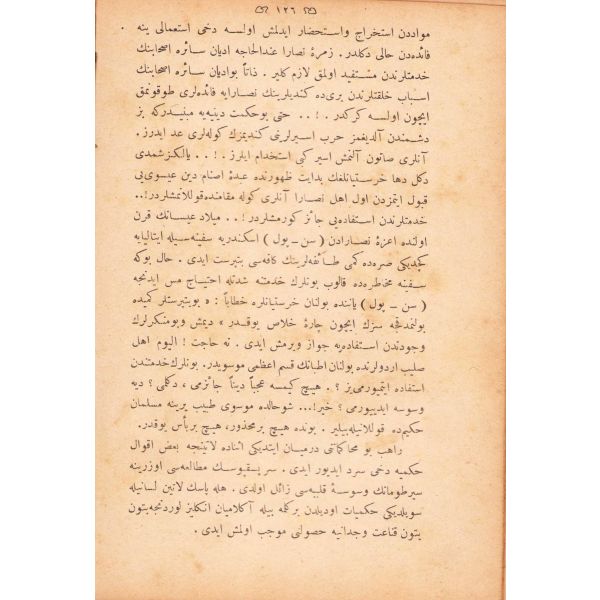 ١٢٦
مواددن استخراج واستحضار ایدلمش اولسه دخی استعمالی ینه
فائده‌دن خالی دكلدر . زمرهٔ نصارا عندالحاجه ادیان سائره اصحابنك
خدمتلرندن مستفید اولمق لازم كلیر . ذاتاً بوادیان سائره اصحابنك
اسباب خلقتلرندن بری‌ده كندیلرینك نصارایه فائده‌لری طوقونمق
ایچون اولسه كركدر . ! . . حتی بوحكمت دینیه‌یه مبنیدركه بز
دشمندن آلدیغمز حرب اسیرلرینی كندیمزك كوله‌لری عد ایدرز .
آنلری صاتون آلنمش اسیر كبی استخدام ایلرز . ! . . یالكزشمدی
دكل دها خرستیانلغك بدایت ظهورنده عبدهٔ اصنام دین عیسوی‌یی
قبول ایتمزدن اول اهل نصارا آنلری كوله مقامنده‌قوللانمشلردر!..
خدمتلرندن استفاده‌یی جائز كورمشلردر ! . . میلاد عیسانك قرن
اولنده اعزهٔ نصارادن ( سن ـ پول ) اسكندریه سفینه‌سیله ایتالیایه
كچدیكی صره‌ده كمی طائفه‌لرینك كافه‌سی بتپرست ایدی . حال بوكه
سفینه مخاطره‌ده قالوب بونلرك خدمتنه شدتله احتیاج مس ایدنجه
( سن ـ پول ) یاننده بولنان خرستیانلره خطاباً : « بوبتپرستلر كمیده
بولنمدقجه سزك ایچون چارهٔ خلاص یوقدر » دیمش وبومنكرلرك
وجودندن استفاده‌یه جواز ویرمش ایدی . نه حاجت ! الیوم اهل
صلیب اردولرنده بولنان اطبانك قسم اعظمی موسویدر . بونلرك خدمتندن
استفاده ایتمیورمی‌یز ؟ . هیچ كیمسه عجبا دیناً جائزمی ، دكلمی ؟ دیه
وسوسه ایدییورمی ؟ خیر!... شوحالده موسوی طبیب یرینه مسلمان
حكیم‌ده قوللانیله‌بیلیر . بونده هیچ برمحذور، هیچ بربأس یوقدر.
راهب بو محاكماتی درمیان ایتدیكی اثناده لاتینجه بعض اقوال
حكمیه دخی سرد ایدیور ایدی . سر پسقپوسك مطالعه‌سی اوزرینه
سیرطوماتك وسوسهٔ قلبیه‌سی زائل اولدی . هله پاسك لاتین لسانیله
سویلدیكی حكمیات اودیلدن بركلمه بیله آكلامیان انكلیز لوردنجه‌بتون
بتون قناعت وجدانیه حصولنی موجب اولمش ایدی .